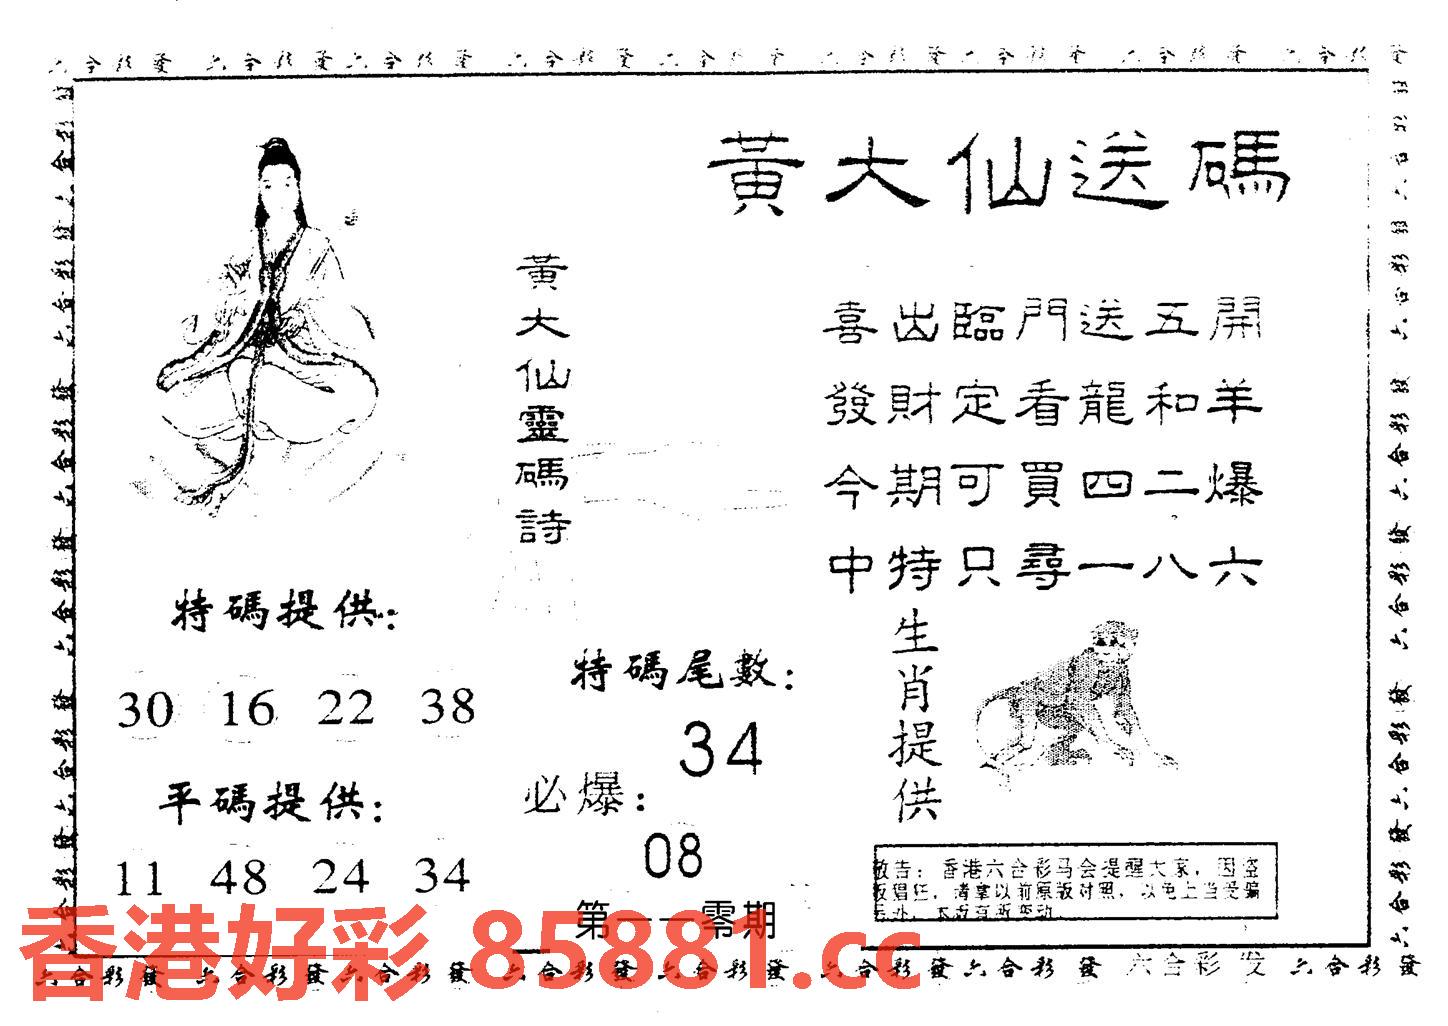 六合彩發 六合彩發六合彩發 六合彩發 六合彩發 六合彩發六合彩發 六合彩發 六合彩發
黃大仙送碼
黃大仙靈碼詩
喜出臨門送五開
發財定看龍和羊
今期可買四二爆
中特只尋一八六
特碼提供：
30 16 22 38
平碼提供：
11 48 24 34
特碼尾數：
34
必爆：
08
第一一零期
生肖提供
敬告：香港六合彩马会提醒大家，因盗
版猖狂，请拿以前原版对照，以免上当受骗
香港好彩 85881.cc
六合彩發 六合彩發六合彩發 六合彩發 六合彩發 六合彩發六合彩發 六合彩发 六合彩發